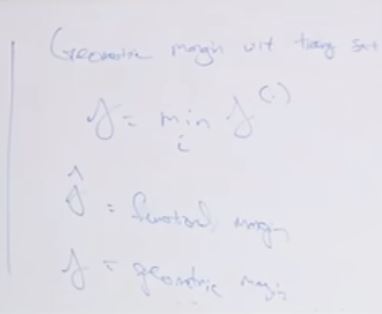 Geometric margin wrt training set
γ = min_i γ^(i)
γ̂ = functional margin
γ = geometric margin